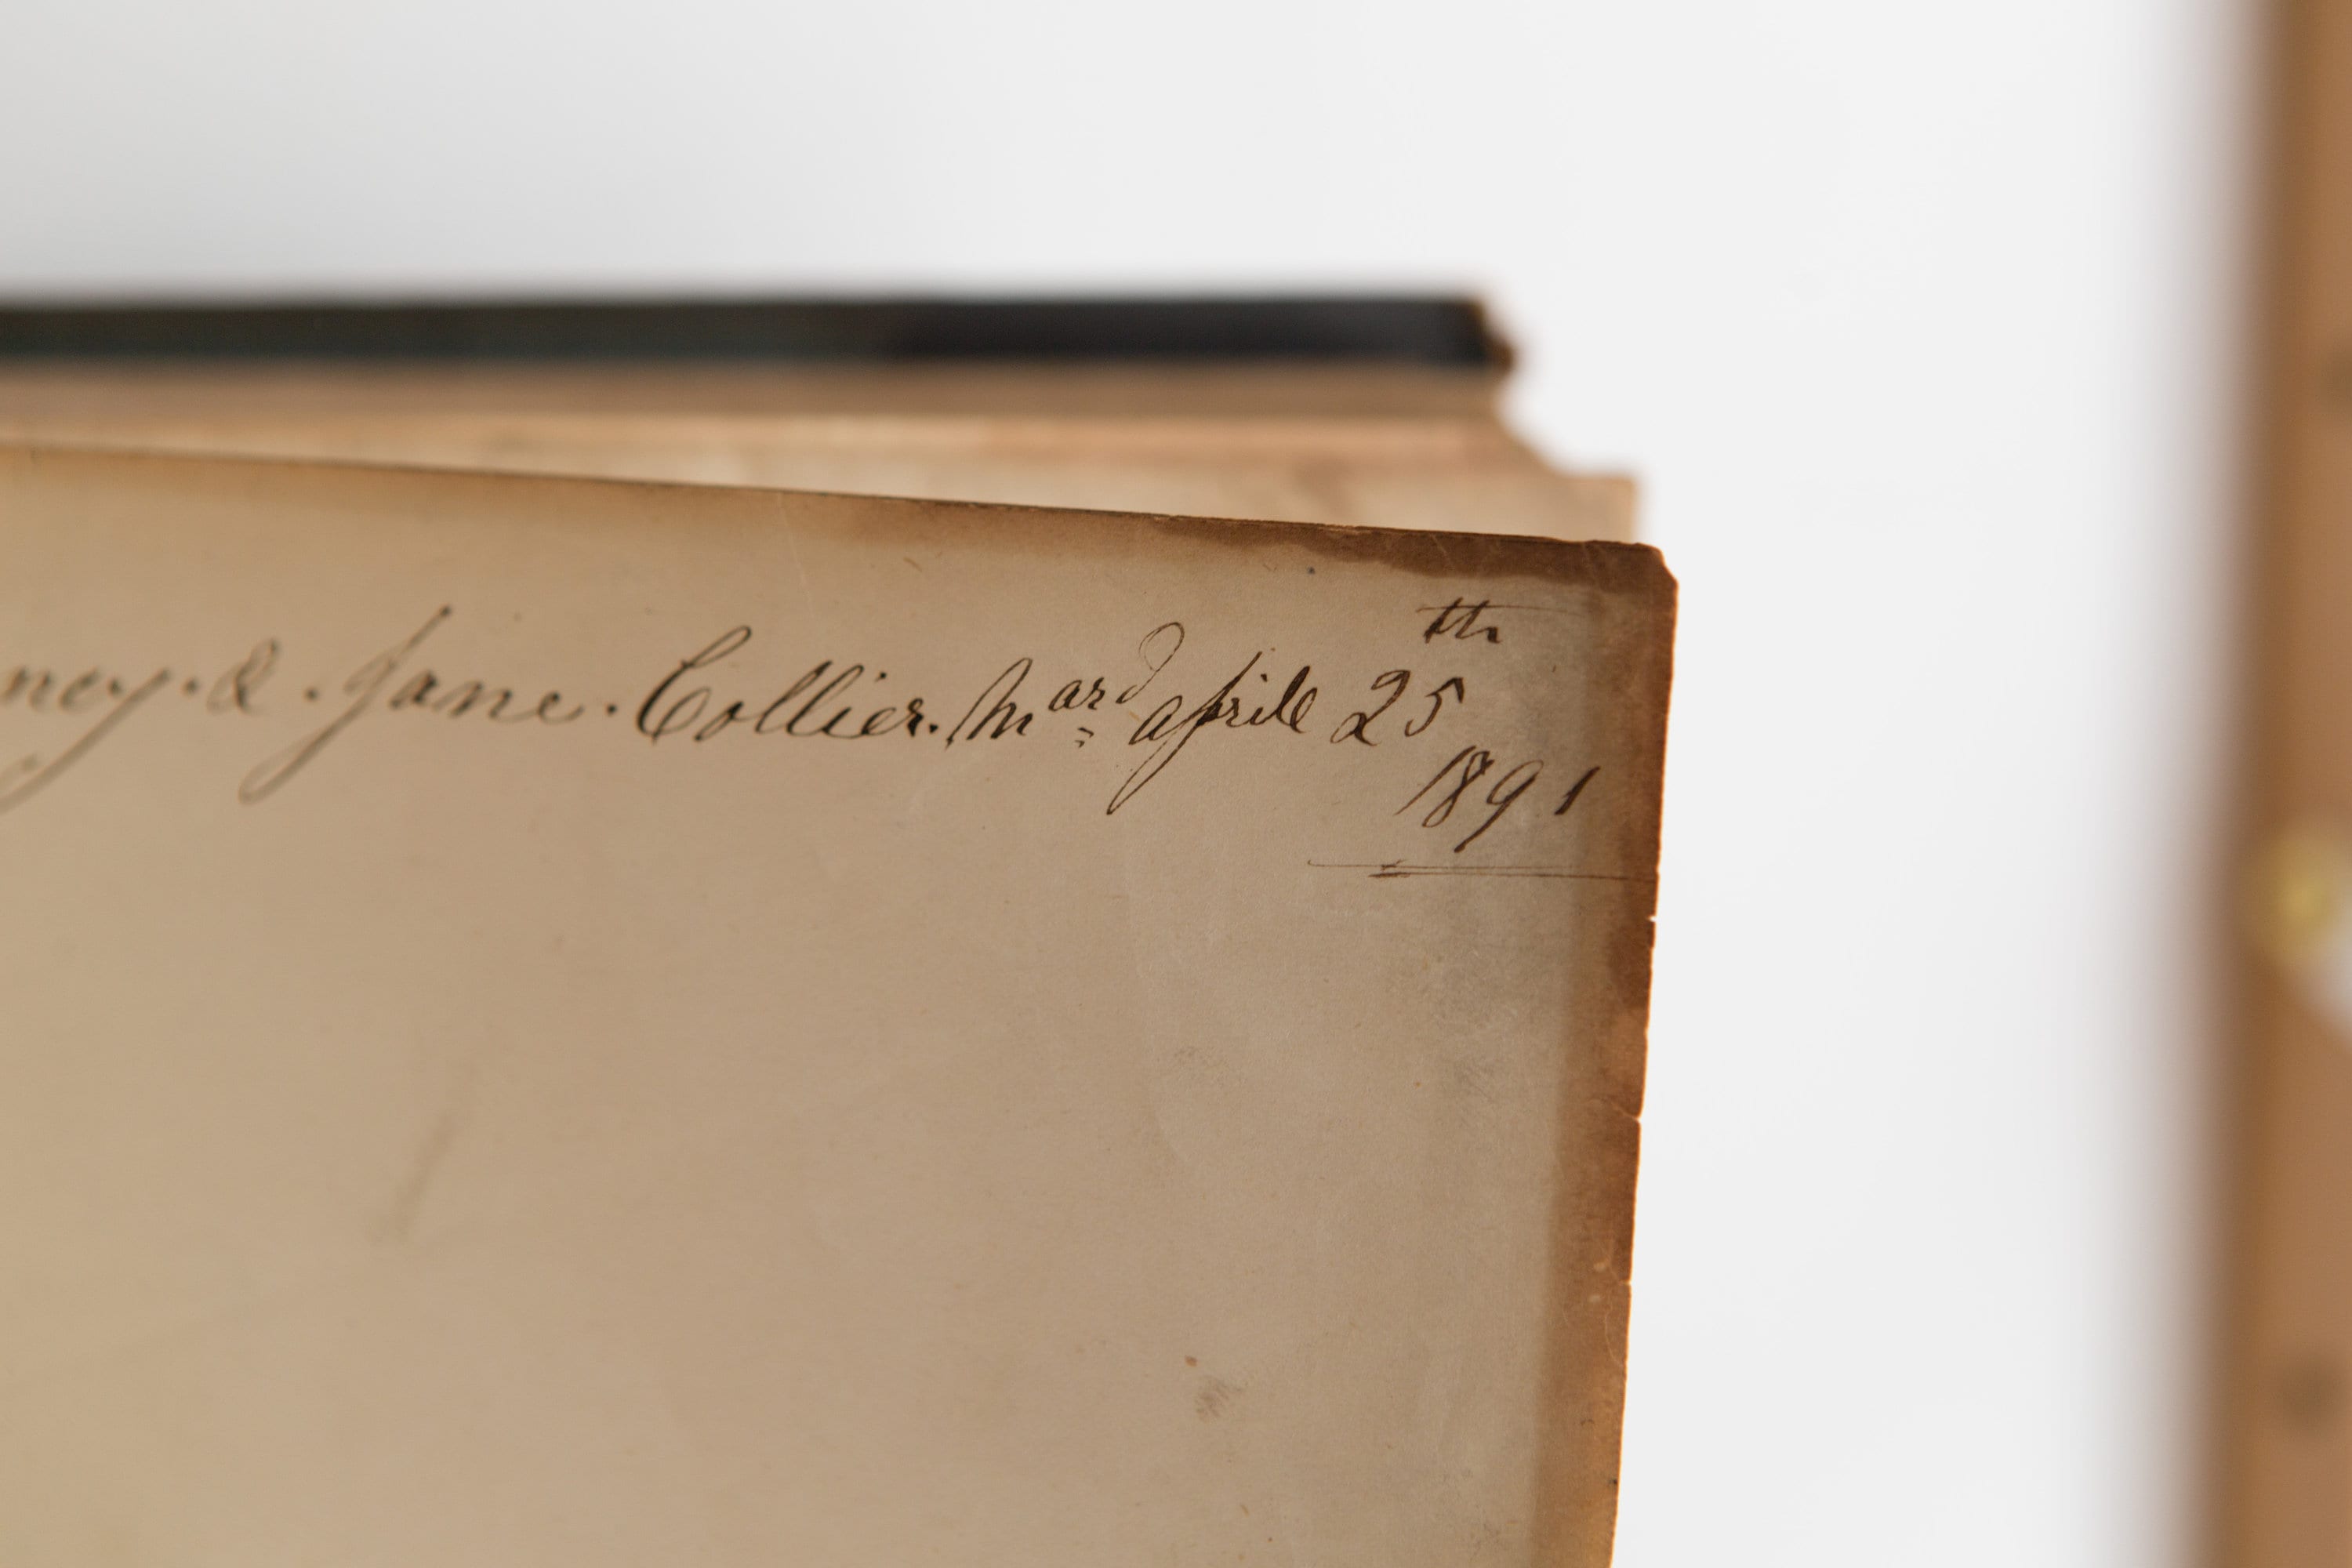 ney. & . Jane. Collier. Mard aprile 25th
1891